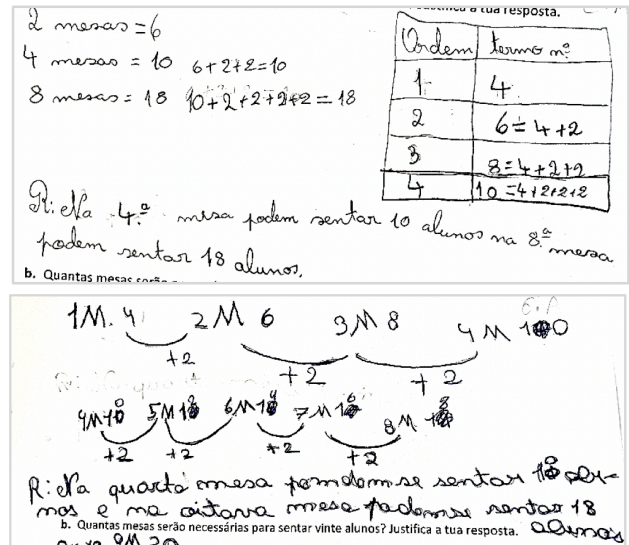 justifica a tua resposta.
2 mesas = 6
4 mesas = 10 6+2+2=10
8 mesas = 18 10+2+2+2+2=18
Ordem termo nº
1 4
2 6=4+2
3 8=4+2+2
4 10=4+2+2+2
R: Na 4.ª mesa podem sentar 10 alunos na 8.ª mesa
podem sentar 18 alunos.
b. Quantas mesas serão
1M. 4 2M 6 3M 8 4M 10
+2 +2 +2
4M 10 5M 12 6M 14 7M 16 8M 18
+2 +2 +2 +2
R: Na quarta mesa pomdomse sentar 10 alu-
nos e na oitava mesa padomse sentar 18
alunos
b. Quantas mesas serão necessárias para sentar vinte alunos? Justifica a tua resposta.
9M 20